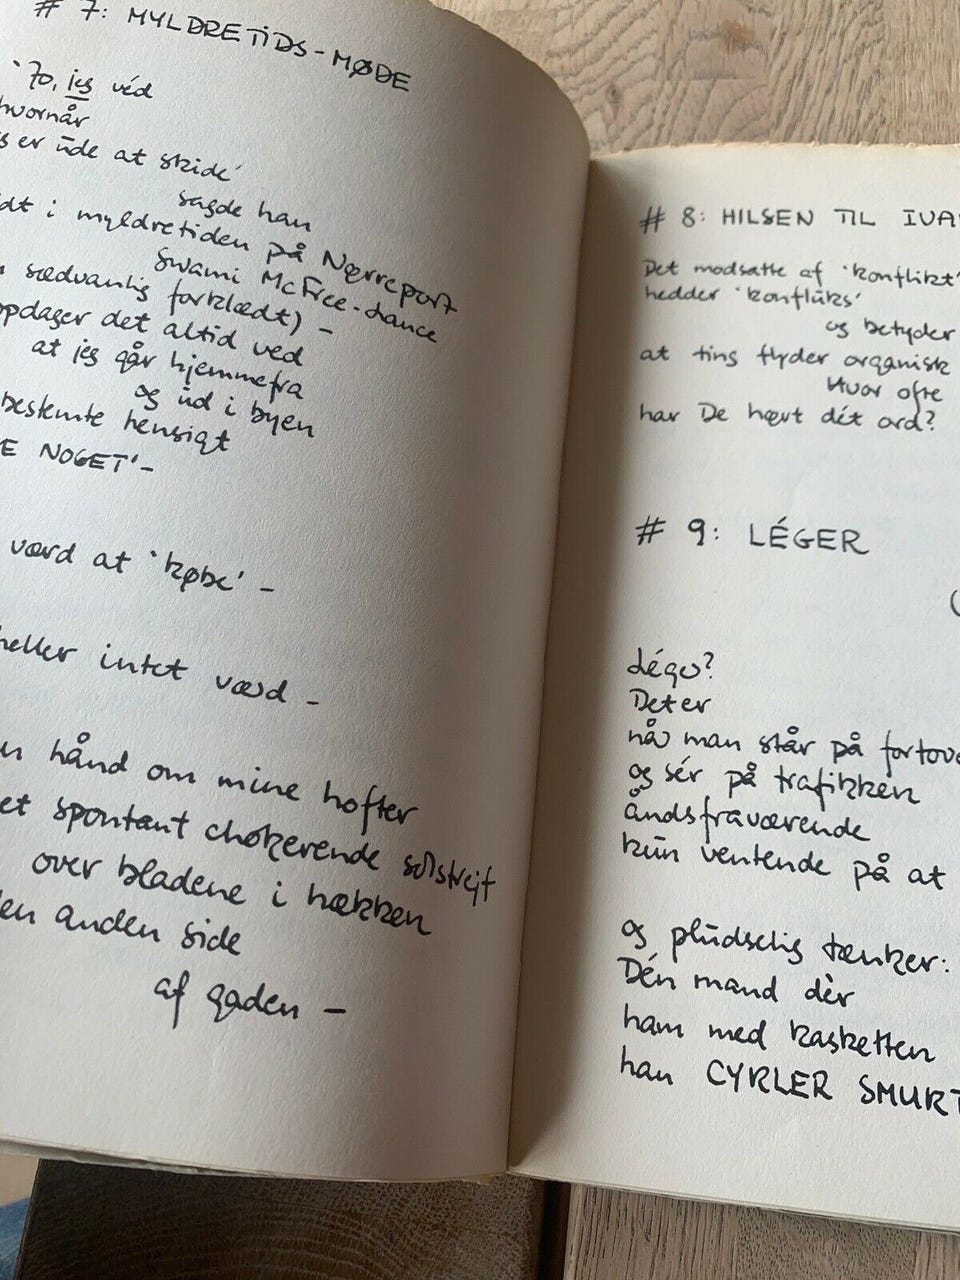 # 7: MYLDRETIDS-MØDE
'Jo, jeg véd
hvornår
er ude at skide'
sagde han
i myldretiden på Nørreport
Swami McFree-dance
sædvanlig forklædt) –
opdager det altid ved
at jeg går hjemmefra
og ud i byen
bestemte hensigt
NOGET' –
værd at 'købe' –
heller intet værd –
hånd om mine hofter
et spontant chokerende solstrejf
over bladene i hækken
den anden side
af gaden –
# 8: HILSEN TIL
Det modsatte af 'konflikt'
hedder 'konfluks'
og betyder
at ting flyder organisk
Hvor ofte
har De hørt dét ord?
# 9: LÉGER
Légo?
Det er
når man står på
og sér på trafikken
åndsfraværende
kun ventende på at
og pludselig tænker:
Dén mand dèr
ham med kasketten
han CYKLER SMURT